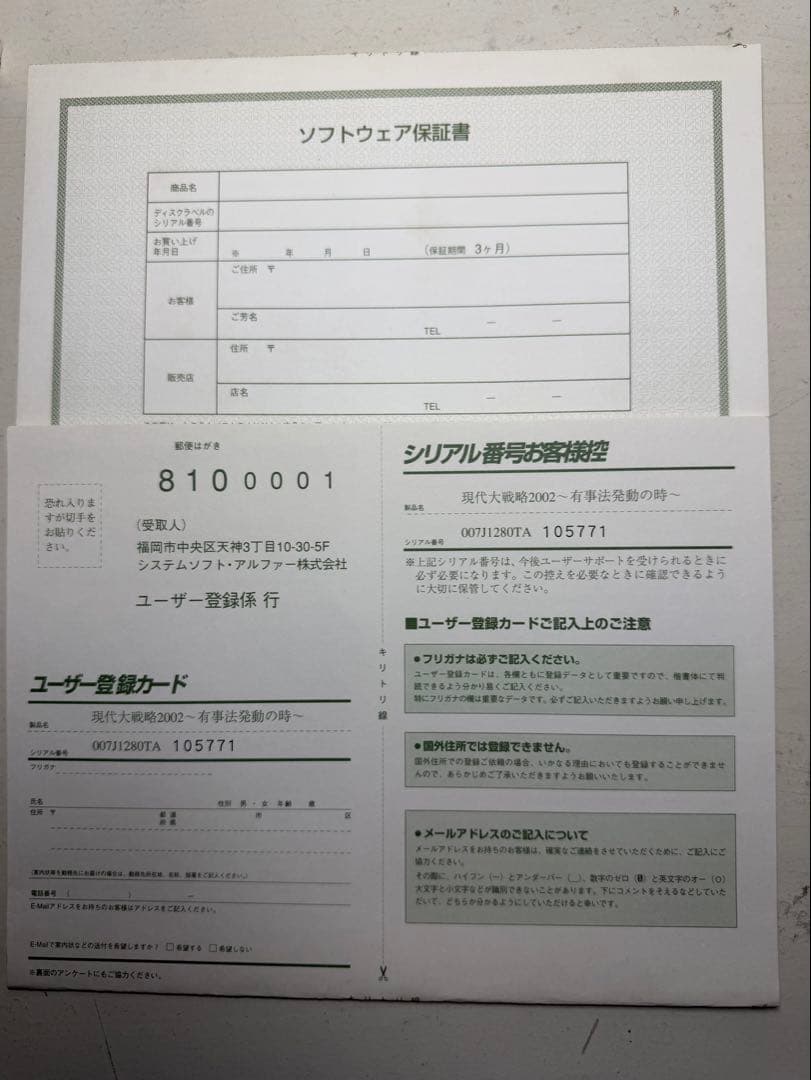 キリトリ線
ソフトウェア保証書
商品名
ディスクラベルの
シリアル番号
お買い上げ
年月日
※ 年 月 日 （保証期間 3ヶ月）
お客様
ご住所 〒
ご芳名
TEL — —
販売店
住所 〒
店名
TEL — —
郵便はがき
8100001
恐れ入りま
すが切手を
お貼りくだ
さい。
（受取人）
福岡市中央区天神3丁目10-30-5F
システムソフト・アルファー株式会社
ユーザー登録係 行
ユーザー登録カード
製品名 現代大戦略2002～有事法発動の時～
シリアル番号 007J1280TA 105771
フリガナ
氏名 性別 男・女 年齢 歳
住所 〒 都道府県 市 区
（案内状等を勤務先にお届けの場合は、勤務先所在地、名称、部署をご記入ください。）
電話番号 （ ） —
E-Mailアドレスをお持ちのお客様はアドレスをご記入ください。
E-Mailで案内状などの送付を希望しますか？ □希望する □希望しない
※裏面のアンケートにもご協力ください。
キリトリ線
シリアル番号お客様控
製品名 現代大戦略2002～有事法発動の時～
シリアル番号 007J1280TA 105771
※上記シリアル番号は、今後ユーザーサポートを受けられるときに
必ず必要になります。この控えを必要なときに確認できるよう
に大切に保管してください。
■ユーザー登録カードご記入上のご注意
●フリガナは必ずご記入ください。
ユーザー登録カードは、各欄ともに登録データとして重要ですので、楷書体にて判
読できるよう分かり易くご記入ください。
特にフリガナの欄は重要なデータです。必ずご記入いただきますようお願い申し上げます。
●国外住所では登録できません。
国外住所での登録ご依頼の場合、いかなる理由においても登録することができませ
んので、あらかじめご了承いただきますようお願いいたします。
●メールアドレスのご記入について
メールアドレスをお持ちのお客様は、確実なご連絡をさせていただくために、ご記入にご
協力ください。
その際に、ハイフン（—）とアンダーバー（＿）、数字のゼロ（0）と英文字のオー（O）
大文字と小文字などが識別できないことがあります。下にコメントをそえるなどしていた
だいて、どちらか分かるようにしていただけると幸いです。
キリトリ線